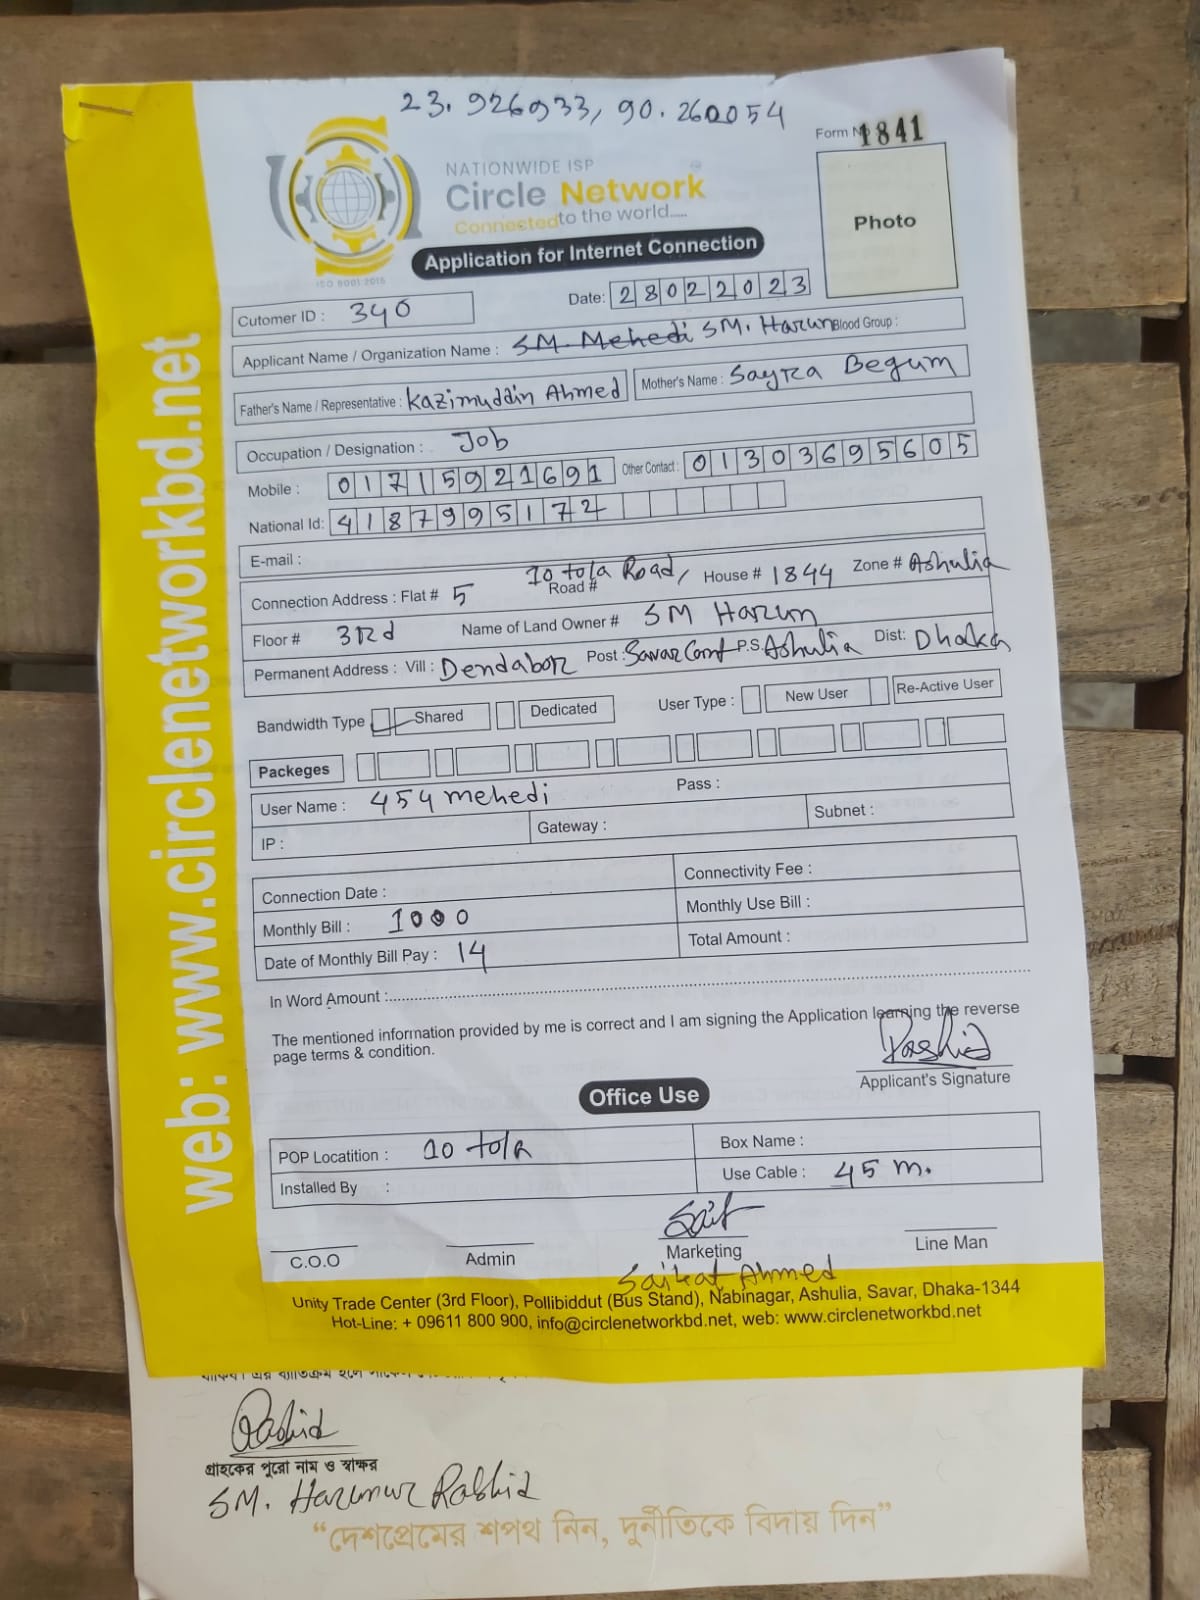 23.926933, 90.260054
Form No 1841
NATIONWIDE ISP
Circle Network
Connected to the world.....
ISO 9001:2015
Photo
Application for Internet Connection
Cutomer ID : 340
Date: 28022023
Applicant Name / Organization Name : SM. Mehedi SM. Harun Blood Group :
Father's Name / Representative : Kazimuddin Ahmed Mother's Name : Sayra Begum
Occupation / Designation : Job
Mobile : 01715921691 Other Contact : 01303695605
National Id: 4187995172
E-mail :
Connection Address : Flat # 5 Road # 10 tola Road, House # 1844 Zone # Ashulia
Floor # 3rd Name of Land Owner # SM Harun
Permanent Address : Vill : Dendabor Post : Savar Cant P.S. Ashulia Dist: Dhaka
Bandwidth Type Shared Dedicated User Type : New User Re-Active User
Packeges
User Name : 454mehedi Pass :
IP : Gateway : Subnet :
Connection Date : Connectivity Fee :
Monthly Bill : 1000 Monthly Use Bill :
Date of Monthly Bill Pay : 14 Total Amount :
In Word Amount :
The mentioned information provided by me is correct and I am signing the Application learning the reverse
page terms & condition.
Rashid
Applicant's Signature
Office Use
POP Locatition : 10 tola Box Name :
Installed By : Use Cable : 45 m.
Saikat
C.O.O Admin Marketing Line Man
Saikat Ahmed
Unity Trade Center (3rd Floor), Pollibiddut (Bus Stand), Nabinagar, Ashulia, Savar, Dhaka-1344
Hot-Line: + 09611 800 900, info@circlenetworkbd.net, web: www.circlenetworkbd.net
web: www.circlenetworkbd.net
Rashid
গ্রাহকের পুরো নাম ও স্বাক্ষর
SM. Harunur Rashid
“দেশপ্রেমের শপথ নিন, দুর্নীতিকে বিদায় দিন”